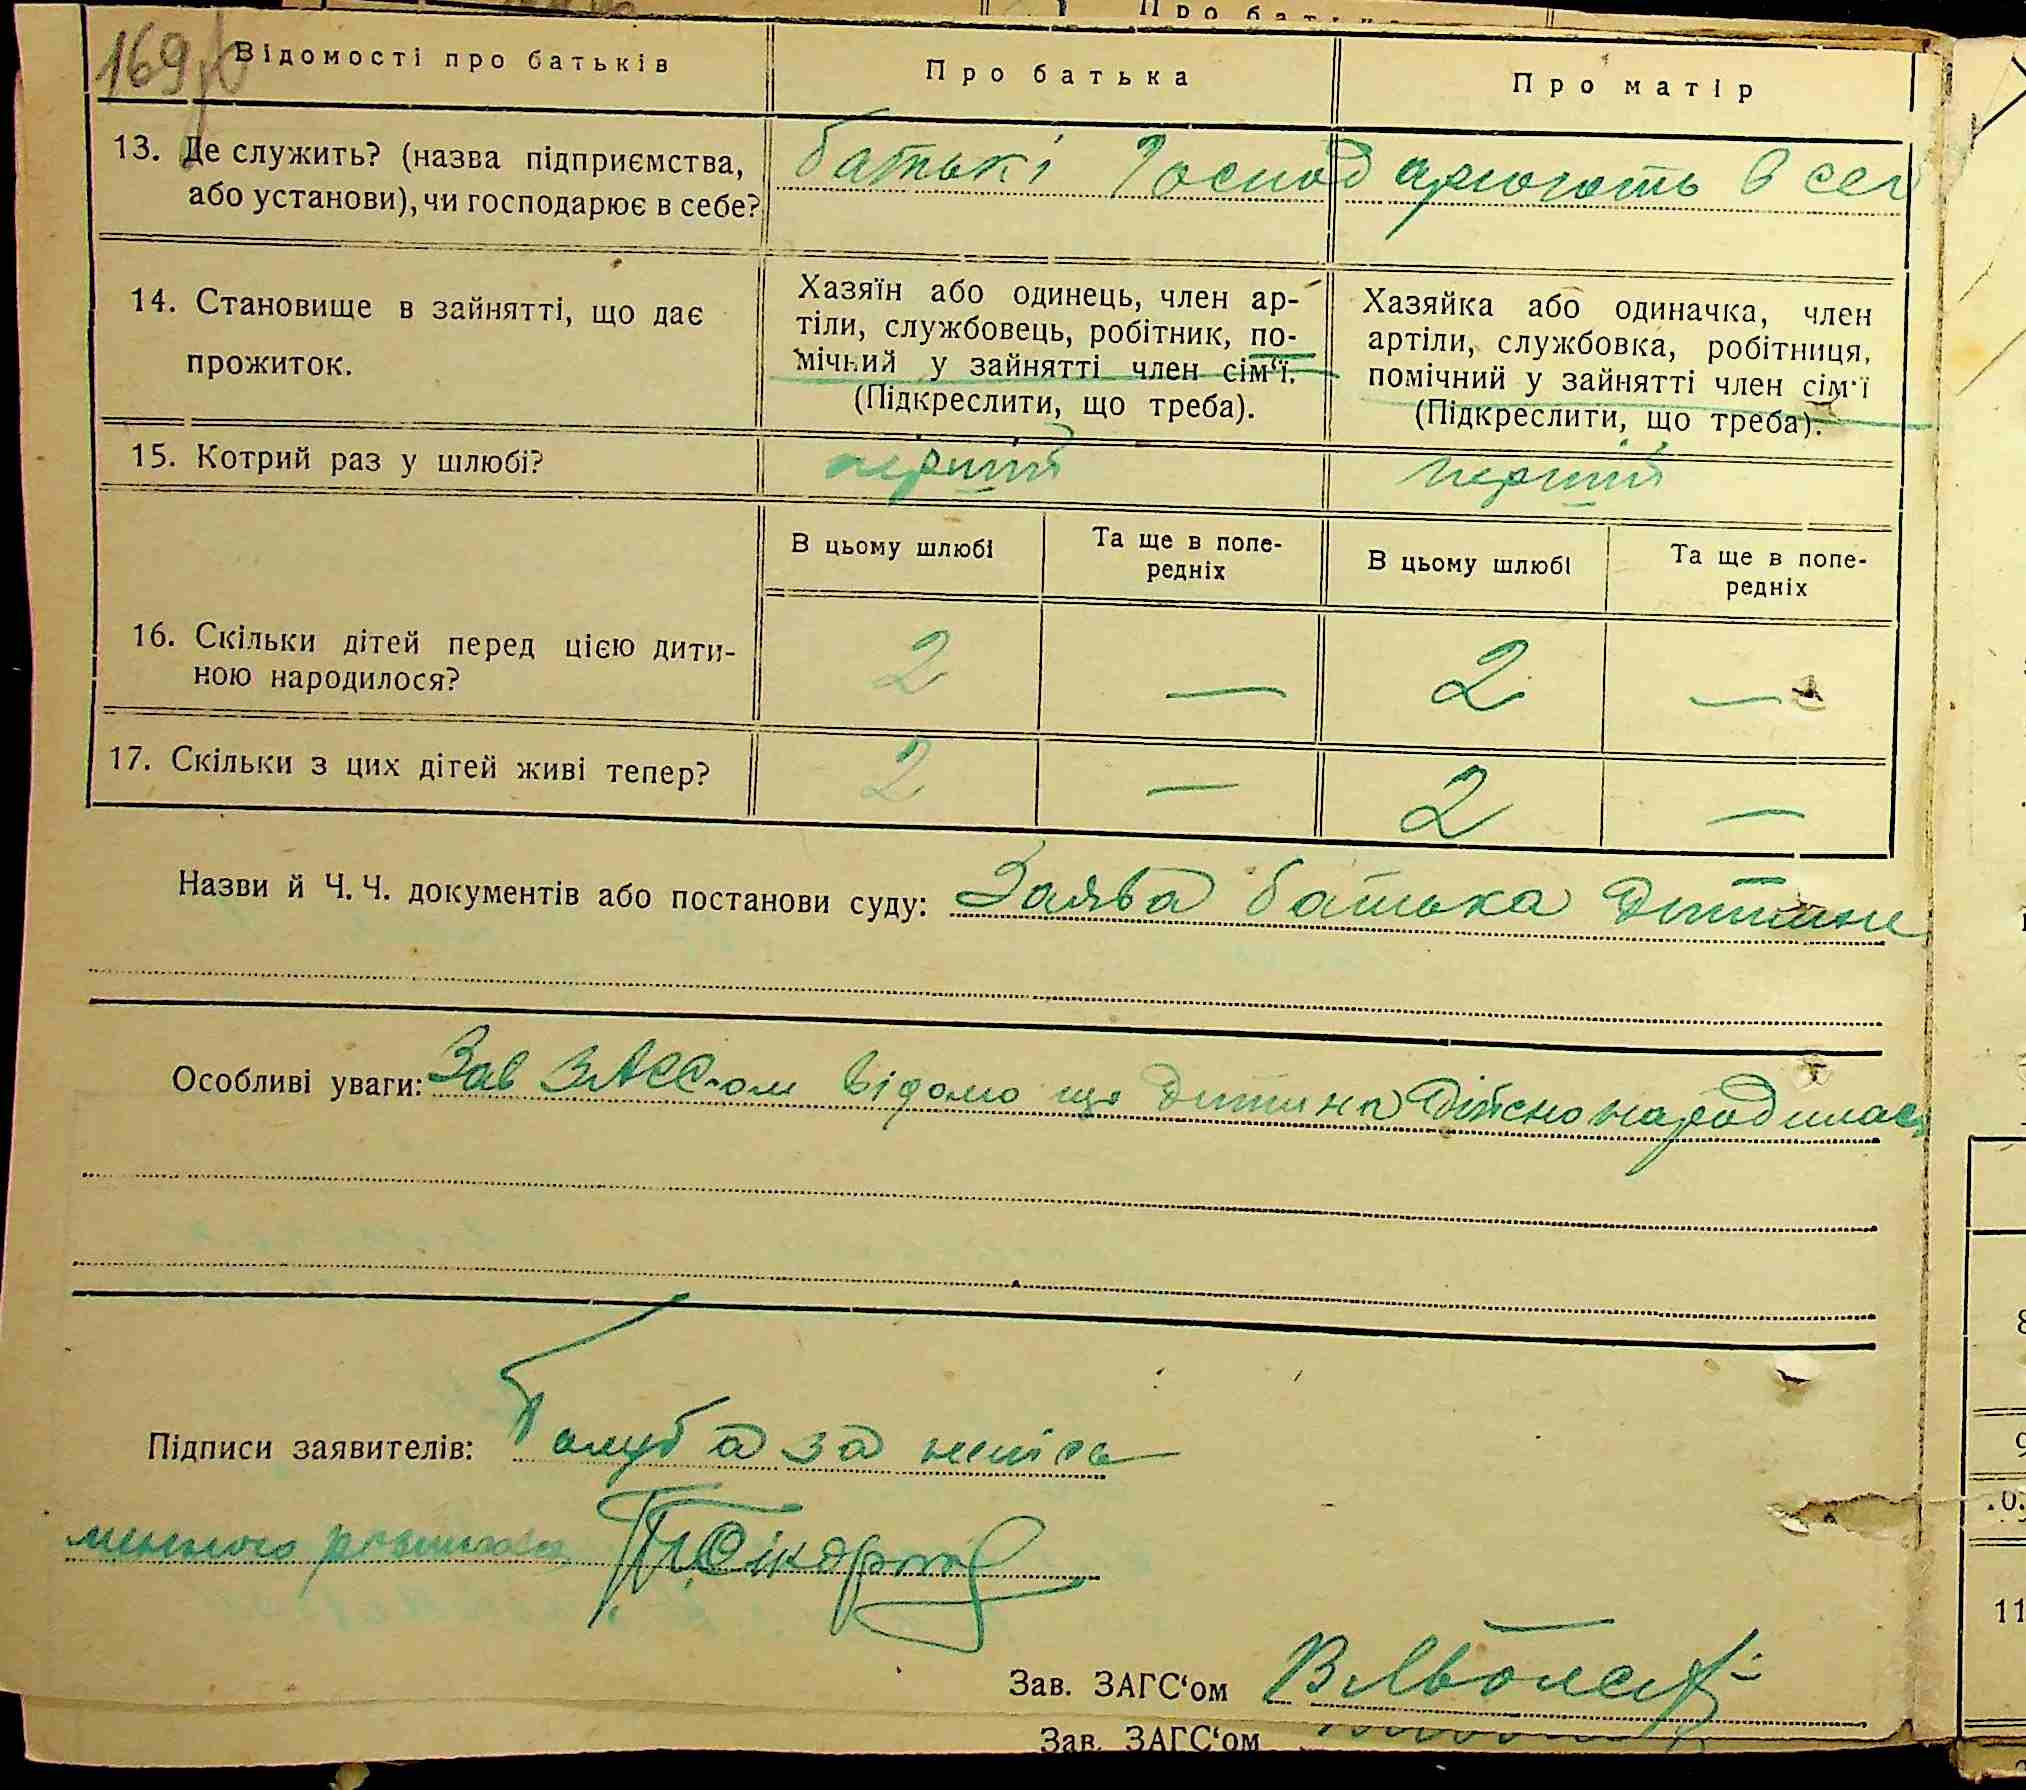 169
Відомості про батьків Про батька Про матір
13. Де служить? (назва підприємства, батькі Господарюють в сеп
або установи), чи господарює в себе?
14. Становище в зайнятті, що дає
прожиток.
Хазяїн або одинець, член ар-
тіли, службовець, робітник, по-
мічний у зайнятті член сім‘ї.
(Підкреслити, що треба).
Хазяйка або одиначка, член
артіли, службовка, робітниця,
помічний у зайнятті член сім‘ї
(Підкреслити, що треба).
15. Котрий раз у шлюбі? перший перший
В цьому шлюбі Та ще в попе-
редніх
В цьому шлюбі Та ще в попе-
редніх
16. Скільки дітей перед цією дити-
ною народилося?
2 — 2 —
17. Скільки з цих дітей живі тепер? 2 — 2 —
Назви й Ч. Ч. документів або постанови суду: Заява батька дитини
Особливі уваги: Зав ЗАГС-ом відомо що дитина дійсно народилась
Підписи заявителів: Голуба за непісь
менного росписався
Зав. ЗАГС‘ом
Зав. ЗАГС‘ом